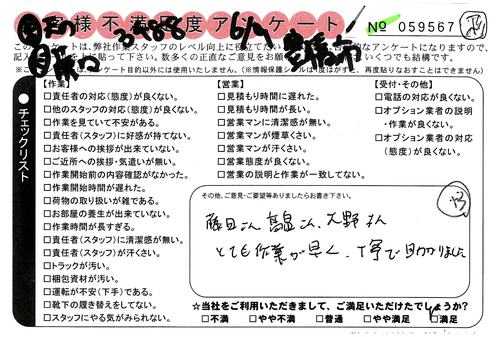 お客様不満足度アンケート
№ 059567
このアンケートは、弊社作業スタッフのレベル向上に役立てたい
的なアンケートになりますので、
上に貼って下さい。数多くの正直なご意見をお願
いくつでも結構です。
アンケート目的以外には使用いたしません。(※情報保護シールは1度はがすと、再度貼りなおすことはできません)
●チェックリスト
【作業】
□責任者の対応(態度)が良くない。
□他のスタッフの対応(態度)が良くない。
□作業を見ていて不安がある。
□責任者(スタッフ)に好感が持てない。
□お客様への挨拶が出来ていない。
□ご近所への挨拶・気遣いが無い。
□作業開始前の内容確認がなかった。
□作業開始時間が遅れた。
□荷物の取り扱いが雑である。
□お部屋の養生が出来ていない。
□作業時間が長すぎる。
□責任者(スタッフ)に清潔感が無い。
□責任者(スタッフ)が汗くさい。
□トラックが汚い。
□梱包資材が汚い。
□運転が不安(下手)である。
□靴下の履き替えをしてない。
□スタッフにやる気がみられない。
【営業】
□見積もり時間に遅れた。
□見積もり時間が長い。
□営業マンに清潔感が無い。
□営業マンが煙草くさい。
□営業マンが汗くさい。
□営業態度が良くない。
□営業の説明と作業が一致してない。
【受付・その他】
□電話の対応が良くない。
□オプション業者の説明
・作業が良くない。
□オプション業者の対応
(態度)が良くない。
その他、ご意見・ご要望等ありましたらお書き下さい。
藤田さん 高畠さん 大野さん
とても作業が早く、丁寧で助かりました
☆当社をご利用いただきまして、ご満足いただけたでしょうか?
□不満 □やや不満 □普通 □やや満足 □満足